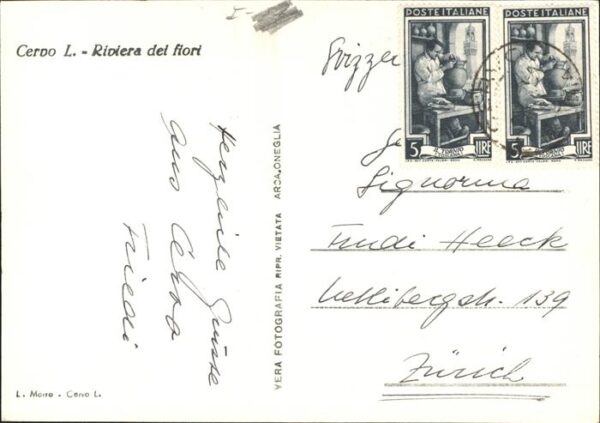 5.-
Cervo L. - Riviera dei fiori
Herzliche Grüsse
aus Cervo
Friedi
L. Morro - Cervo L.
VERA FOTOGRAFIA RIPR. VIETATA ARCA-ONEGLIA
POSTE ITALIANE
5 LIRE
POSTE ITALIANE
5 LIRE
Svizzera
Signorina
Trudi Heeck
139
Zürich